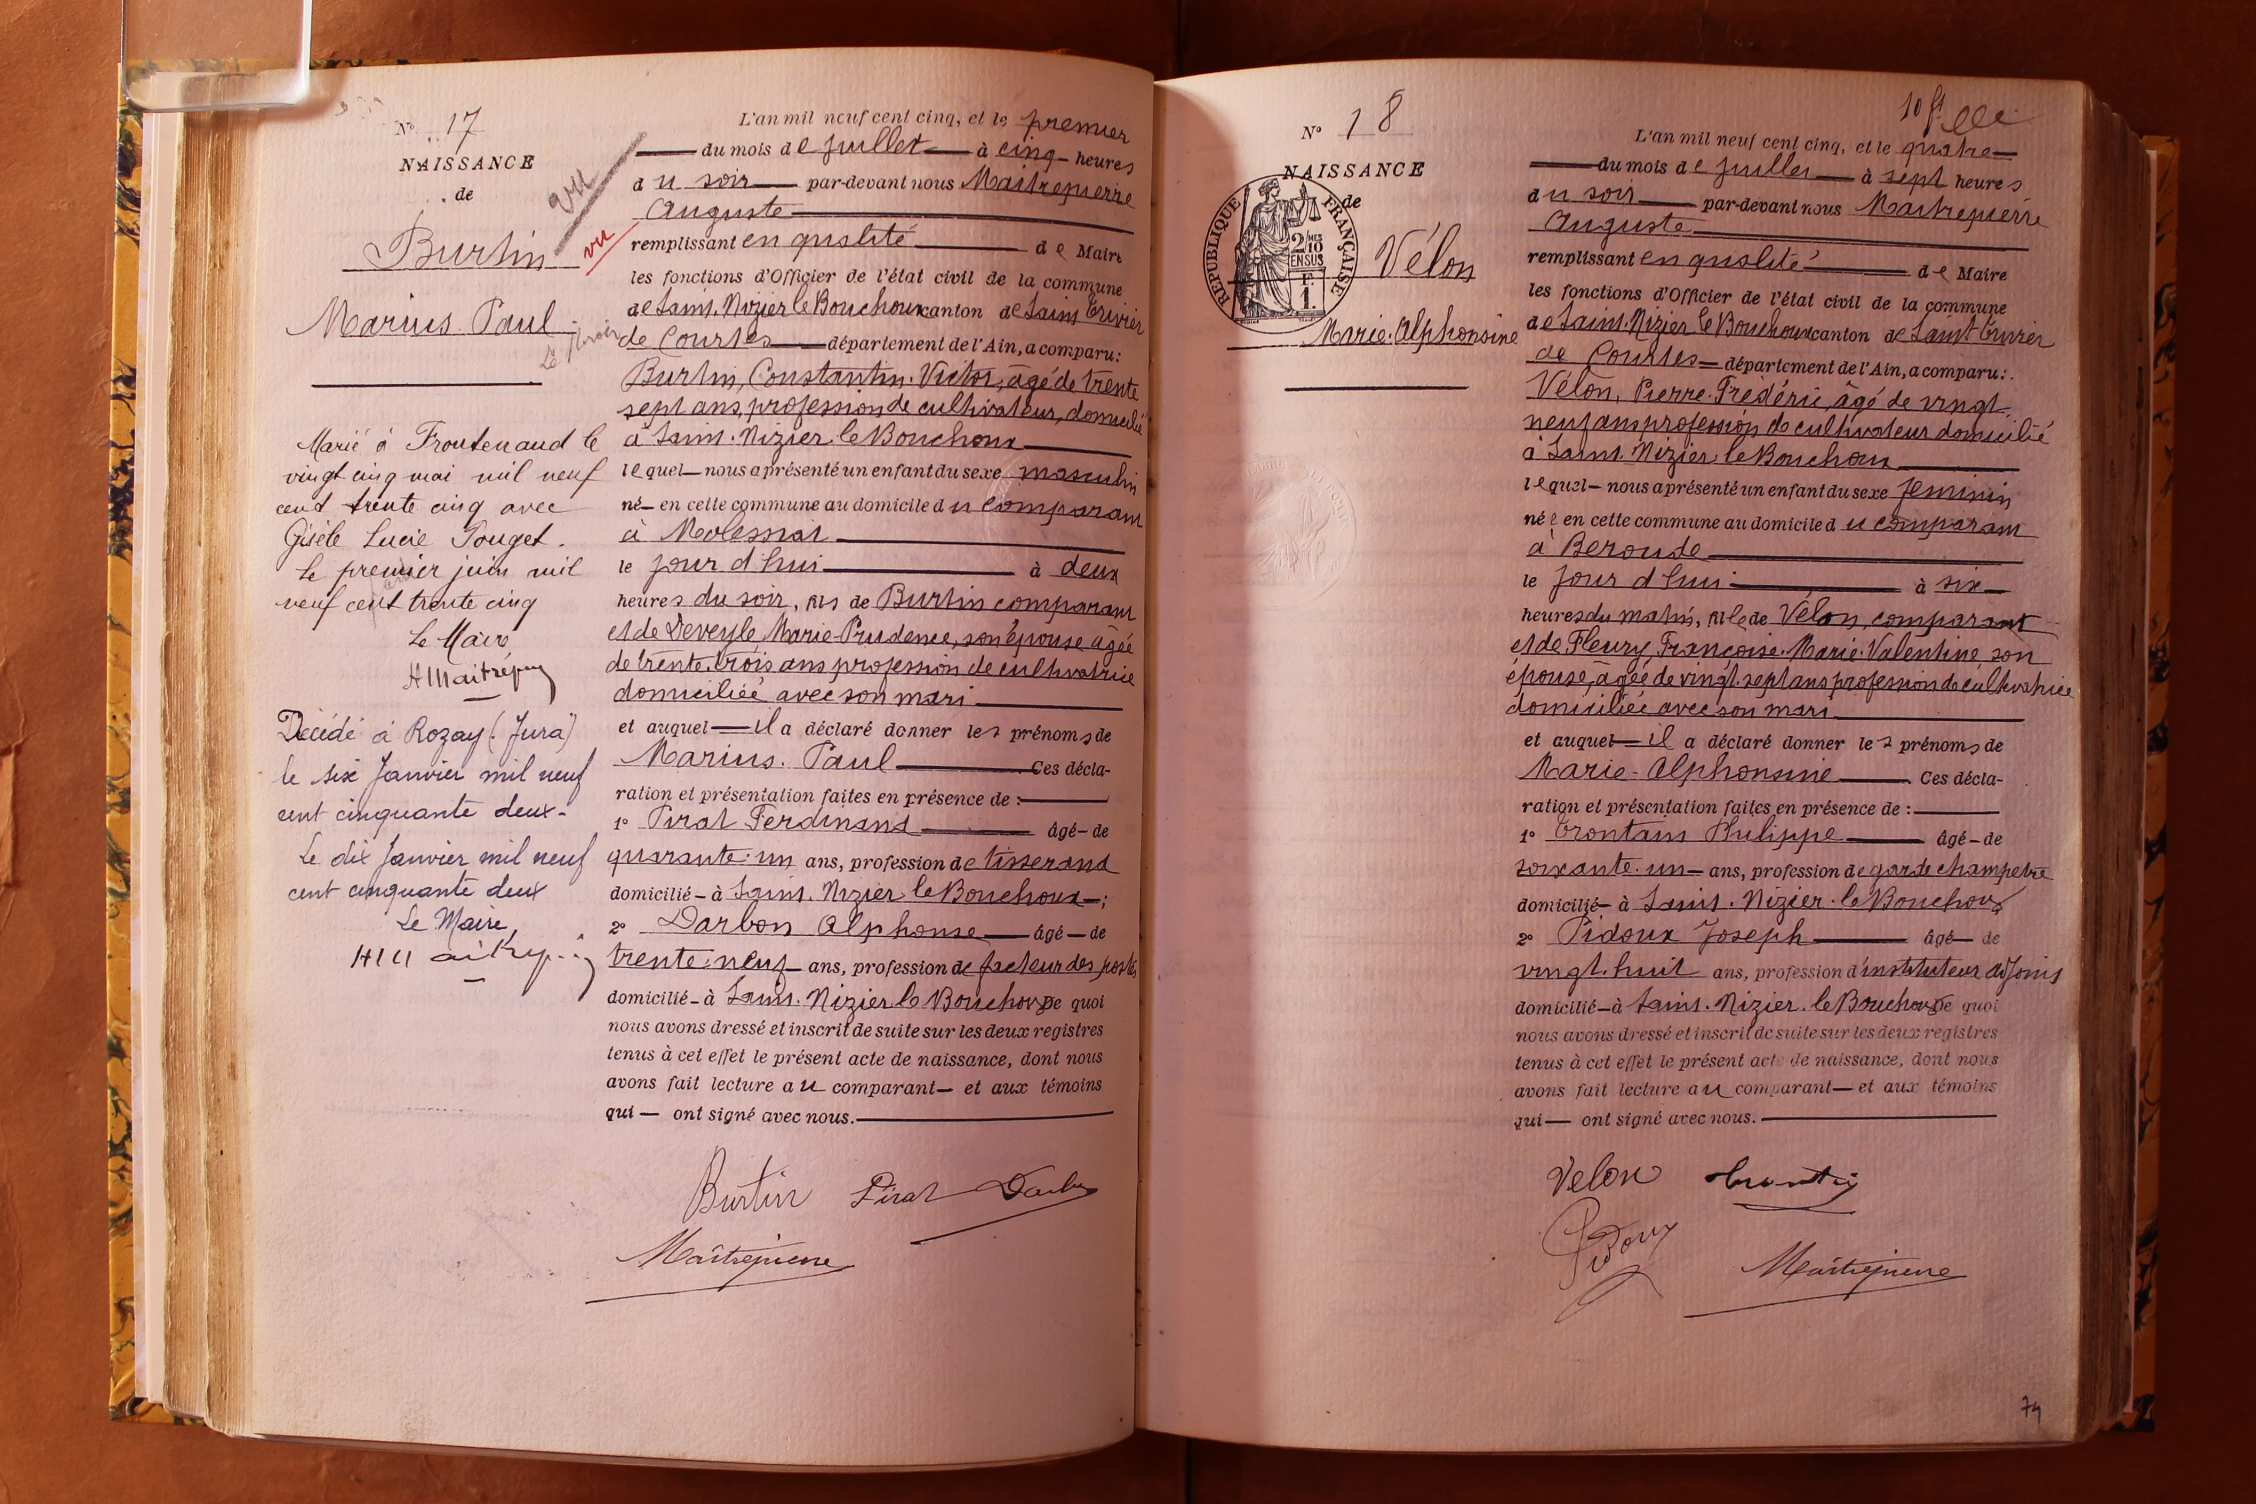 N° 17
NAISSANCE
de
Burtin
Marius Paul
vu
vu
Marié à Frontenaud le
vingt cinq mai mil neuf
cent trente cinq avec
Gisèle Lucie Pouget.
Le premier juin mil
neuf cent trente cinq
Le Maire
HMaitrepierre
Décédé à Rozay (Jura)
le six Janvier mil neuf
cent cinquante deux.
Le dix Janvier mil neuf
cent cinquante deux
Le Maire,
L'an mil neuf cent cinq, et le premier
du mois de Juillet à cinq heures
du soir par-devant nous Maitrepierre
Auguste
remplissant en qualité de Maire
les fonctions d'Officier de l'état civil de la commune
de Saint. Nizier le Bouchoux canton de Saint Trivier
de Courtes département de l'Ain, a comparu:
Burtin, Constantin. Victor, âgé de trente
sept ans, profession de cultivateur, domicilié
à Saint. Nizier le Bouchoux
lequel nous a présenté un enfant du sexe masculin
né en cette commune au domicile du comparant
à Molessiat
le jour d'hui à deux
heures du soir, fils de Burtin comparant
et de Deveyle Marie-Prudence, son épouse âgée
de trente. trois ans profession de cultivatrice
domiciliée avec son mari
et auquel il a déclaré donner les prénoms de
Marius. Paul Ces décla-
ration et présentation faites en présence de :
1° Pirat Ferdinand âgé de
quarante. un ans, profession de tisserand
domicilié à Saint. Nizier le Bouchoux ;
2° Darbon Alphonse âgé de
trente. neuf ans, profession de facteur des postes
domicilié à Saint. Nizier le Bouchoux De quoi
nous avons dressé et inscrit de suite sur les deux registres
tenus à cet effet le présent acte de naissance, dont nous
avons fait lecture au comparant et aux témoins
qui ont signé avec nous.
Burtin Pirat Darbon
Maitrepierre
N° 18
NAISSANCE
de
RÉPUBLIQUE FRANÇAISE
2/MES
10
EN SUS
F.
1.
Vélon
Marie. Alphonsine
L'an mil neuf cent cinq, et le quatre
du mois de Juillet à sept heures
du soir par-devant nous Maitrepierre
Auguste
remplissant en qualité de Maire
les fonctions d'Officier de l'état civil de la commune
de Saint. Nizier le Bouchoux canton de Saint Trivier
de Courtes département de l'Ain, a comparu:
Vélon, Pierre. Frédéric, âgé de vingt
neuf ans profession de cultivateur domicilié
à Saint. Nizier. le Bouchoux
lequel nous a présenté un enfant du sexe féminin
née en cette commune au domicile du comparant
à Beroude
le jour d'hui à six
heures du matin, fille de Vélon, comparant
et de Fleury Françoise. Marie. Valentine, son
épouse, âgée de vingt. sept ans profession de cultivatrice
domiciliée avec son mari
et auquel il a déclaré donner les prénoms de
Marie-Alphonsine Ces décla-
ration et présentation faites en présence de :
1° Trontain Philippe âgé de
soixante. un ans, profession de garde champetre
domicilié à Saint. Nizier. le Bouchoux
2° Pidoux Joseph âgé de
vingt. huit ans, profession d'instituteur adjoint
domicilié à Saint. Nizier. le Bouchoux De quoi
nous avons dressé et inscrit de suite sur les deux registres
tenus à cet effet le présent acte de naissance, dont nous
avons fait lecture au comparant et aux témoins
qui ont signé avec nous.
Velon
Pidoux Maitrepierre
74